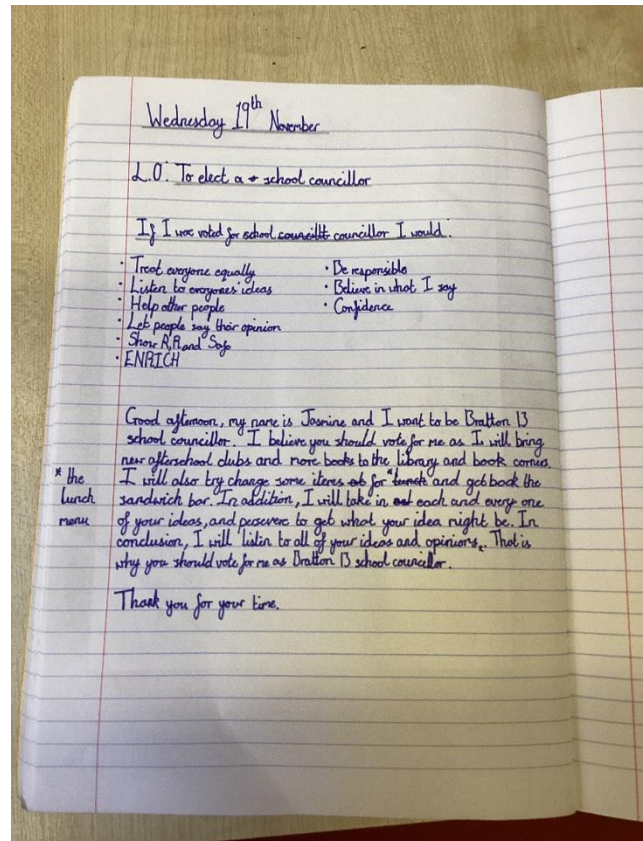 Wednesday 19th November
L.O: To elect a school councillor
If I was voted for school councillor I would:
· Treat everyone equally
· Listen to everyones' ideas
· Help other people
· Let people say their opinion
· Show R,R and Safe
· ENRICH
· Be responsible
· Believe in what I say
· Confidence
Good afternoon, my name is Jasmine and I want to be Bratton 13
school councillor. I believe you should vote for me as I will bring
new afterschool clubs and more books to the library and book corners.
* the
lunch
menu
I will also try change some items for * and get back the
sandwich bar. In addition, I will take in each and every one
of your ideas, and persevere to get what your idea might be. In
conclusion, I will listen to all of your ideas and opinions. That is
why you should vote for me as Bratton 13 school councillor.
Thank you for your time.